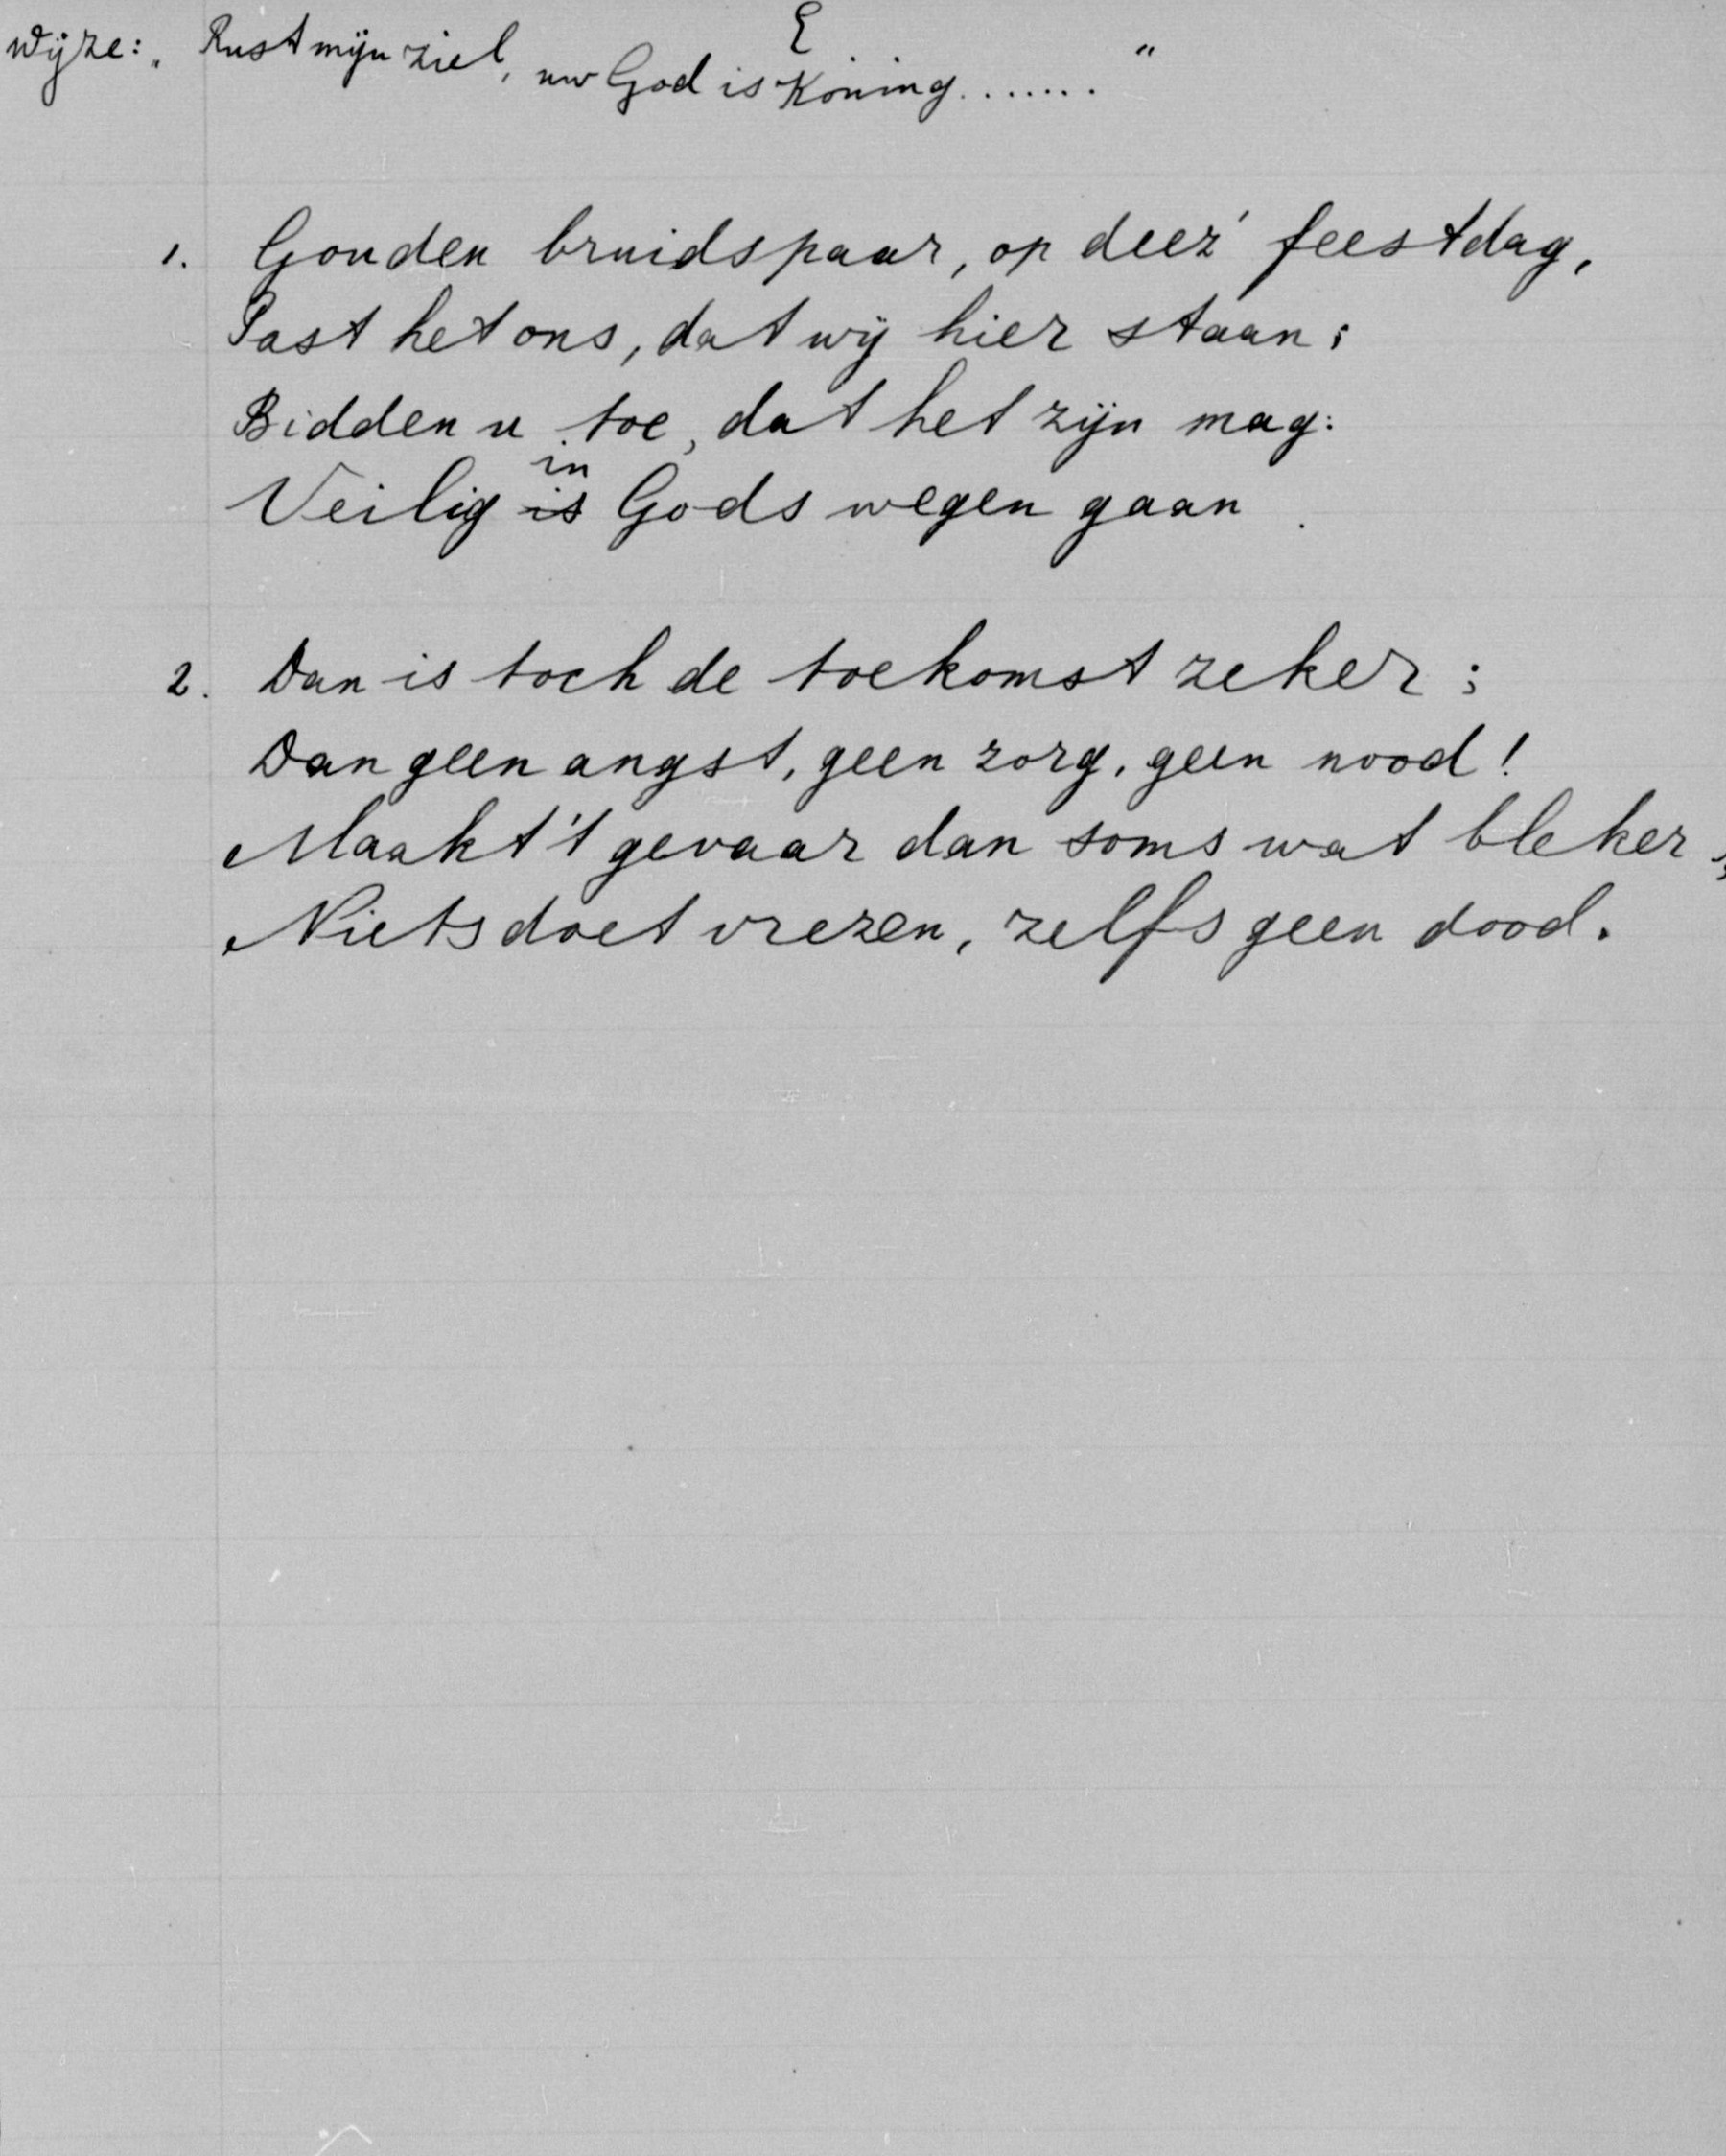 E
Wijze: „Rust mijn ziel, uw God is Koning.......“
1. Gouden bruidspaar, op deez' feestdag,
Past het ons, dat wij hier staan;
Bidden u toe, dat het zijn mag:
in
Veilig is Gods wegen gaan.
2. Dan is toch de toekomst zeker;
Dan geen angst, geen zorg, geen nood!
Maakt 't gevaar dan soms wat bleker,
Niets doet vrezen, zelfs geen dood.